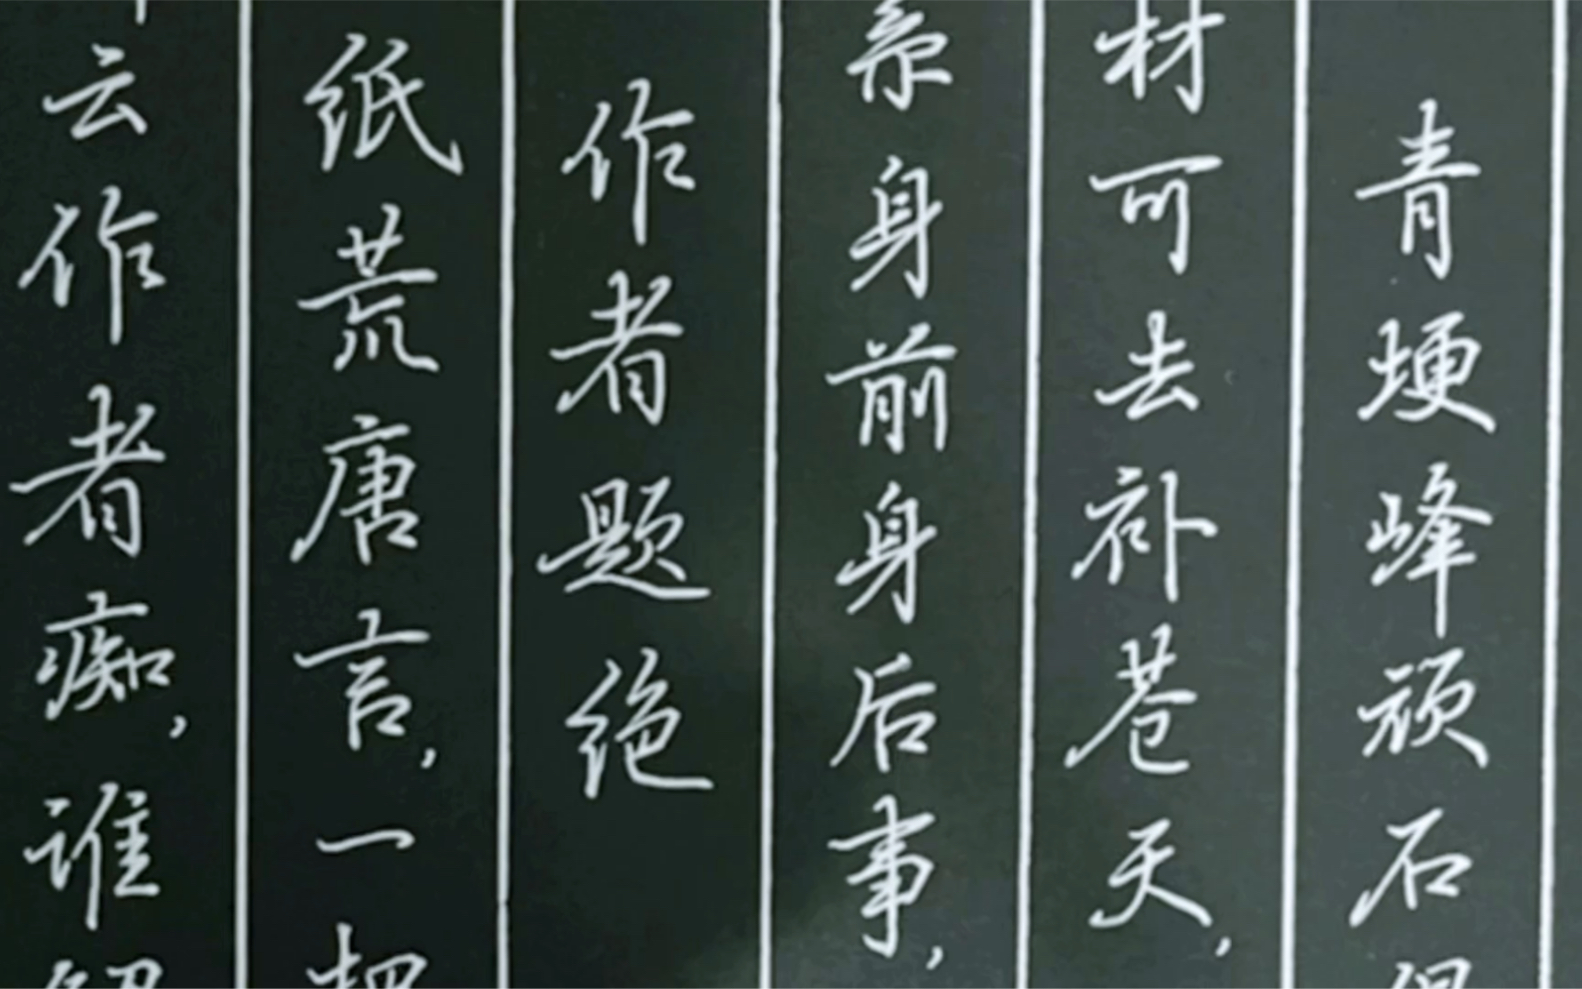 青埂峰顽石
材可去补苍天，
系身前身后事，
作者题绝
纸荒唐言，一把
云作者痴，谁